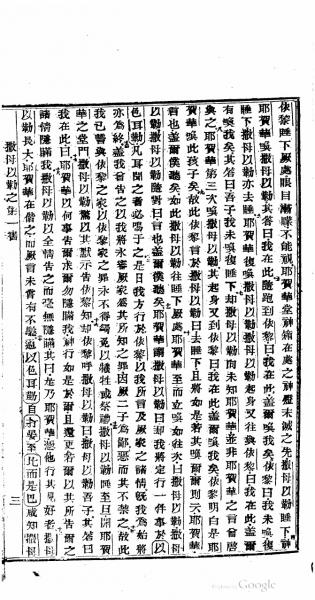 依黎睡下厥處眼目漸矇不能視耶賀華堂神箱在處之神燈未滅之先撒母以勒睡下時
耶賀華喚撒母以勒其答曰我在此隨跑到依黎曰我在此蓋爾喚我矣依黎曰我未喚復
睡下撒母以勒亦去睡耶賀華復喚撒母以勒撒母以勒起身又往與依黎曰我在此蓋爾
有喚我矣其答曰吾子我未喚復睡下却撒母以勒向未知耶賀華並非耶賀華之言曾啓
與之耶賀華第三次喚撒母以勒其起身又到依黎曰我在此蓋爾喚我矣依黎明白是耶
賀華喚此孩子矣故此依黎言於撒母以勒曰去睡下且將如是若其喚爾爾則云耶賀華
言也蓋爾僕聽矣如此撒母以勒往睡下厥處耶賀華至而立喚如往次曰撒母以勒撒母
以勒撒母以勒隨對曰言也蓋爾僕聽矣耶賀華謂撒母以勒曰卻我將定行一件事於以
色耳勒凡耳聞之者必鳴于之是日我方行於依黎以我所言及厥家之諸情既我為始將
亦為終蓋我曾告之以我將永審厥家為其所知之罪因厥二子為鄙惡而其不禁之故此
我已誓與依黎之家以依黎家之罪永不得贖免以犧牲或祭禮撒母以勒睡至旦開耶賀
華之堂門撒母以勒驚以其默示告依黎知卻依黎呼撒母以勒曰撒母以勒吾子其答曰
我在此曰耶賀華以何事告爾求爾勿隱瞞我神行如是於爾且還更若爾以其所告爾之
諸情隱瞞我撒母以勒以全情告之而毫無隱瞞其曰是乃耶賀華憑他行其見好者撒母
以勒長大耶賀華在偕之而厥言未嘗有不驗過以色耳勒自但至比而是巴咸知撒母
撒母以勒之第一書
三
Google